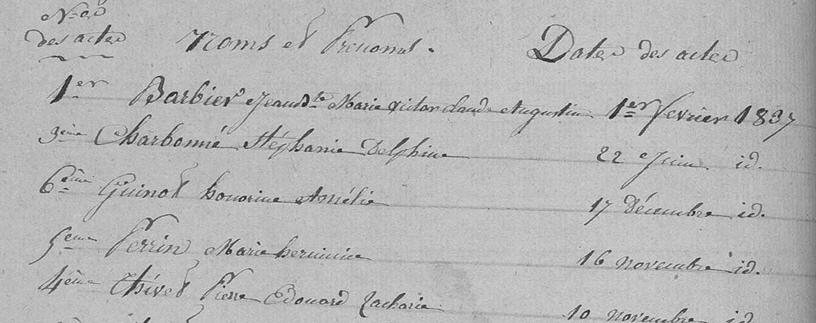 Nos
des actes Noms et Prénoms. Dates des actes
1er Barbier Jean Bte Marie victor claude Augustin 1er fevrier 1837
3ème Charbonné Stéphanie Delphine 22 Juin id.
6ème Guinot honorine Amélie 17 Décembre id.
5ème Perrin Marie herminie 16 novembre id.
4ème Thivet Pierre Edouard Zacharie 10 novembre id.